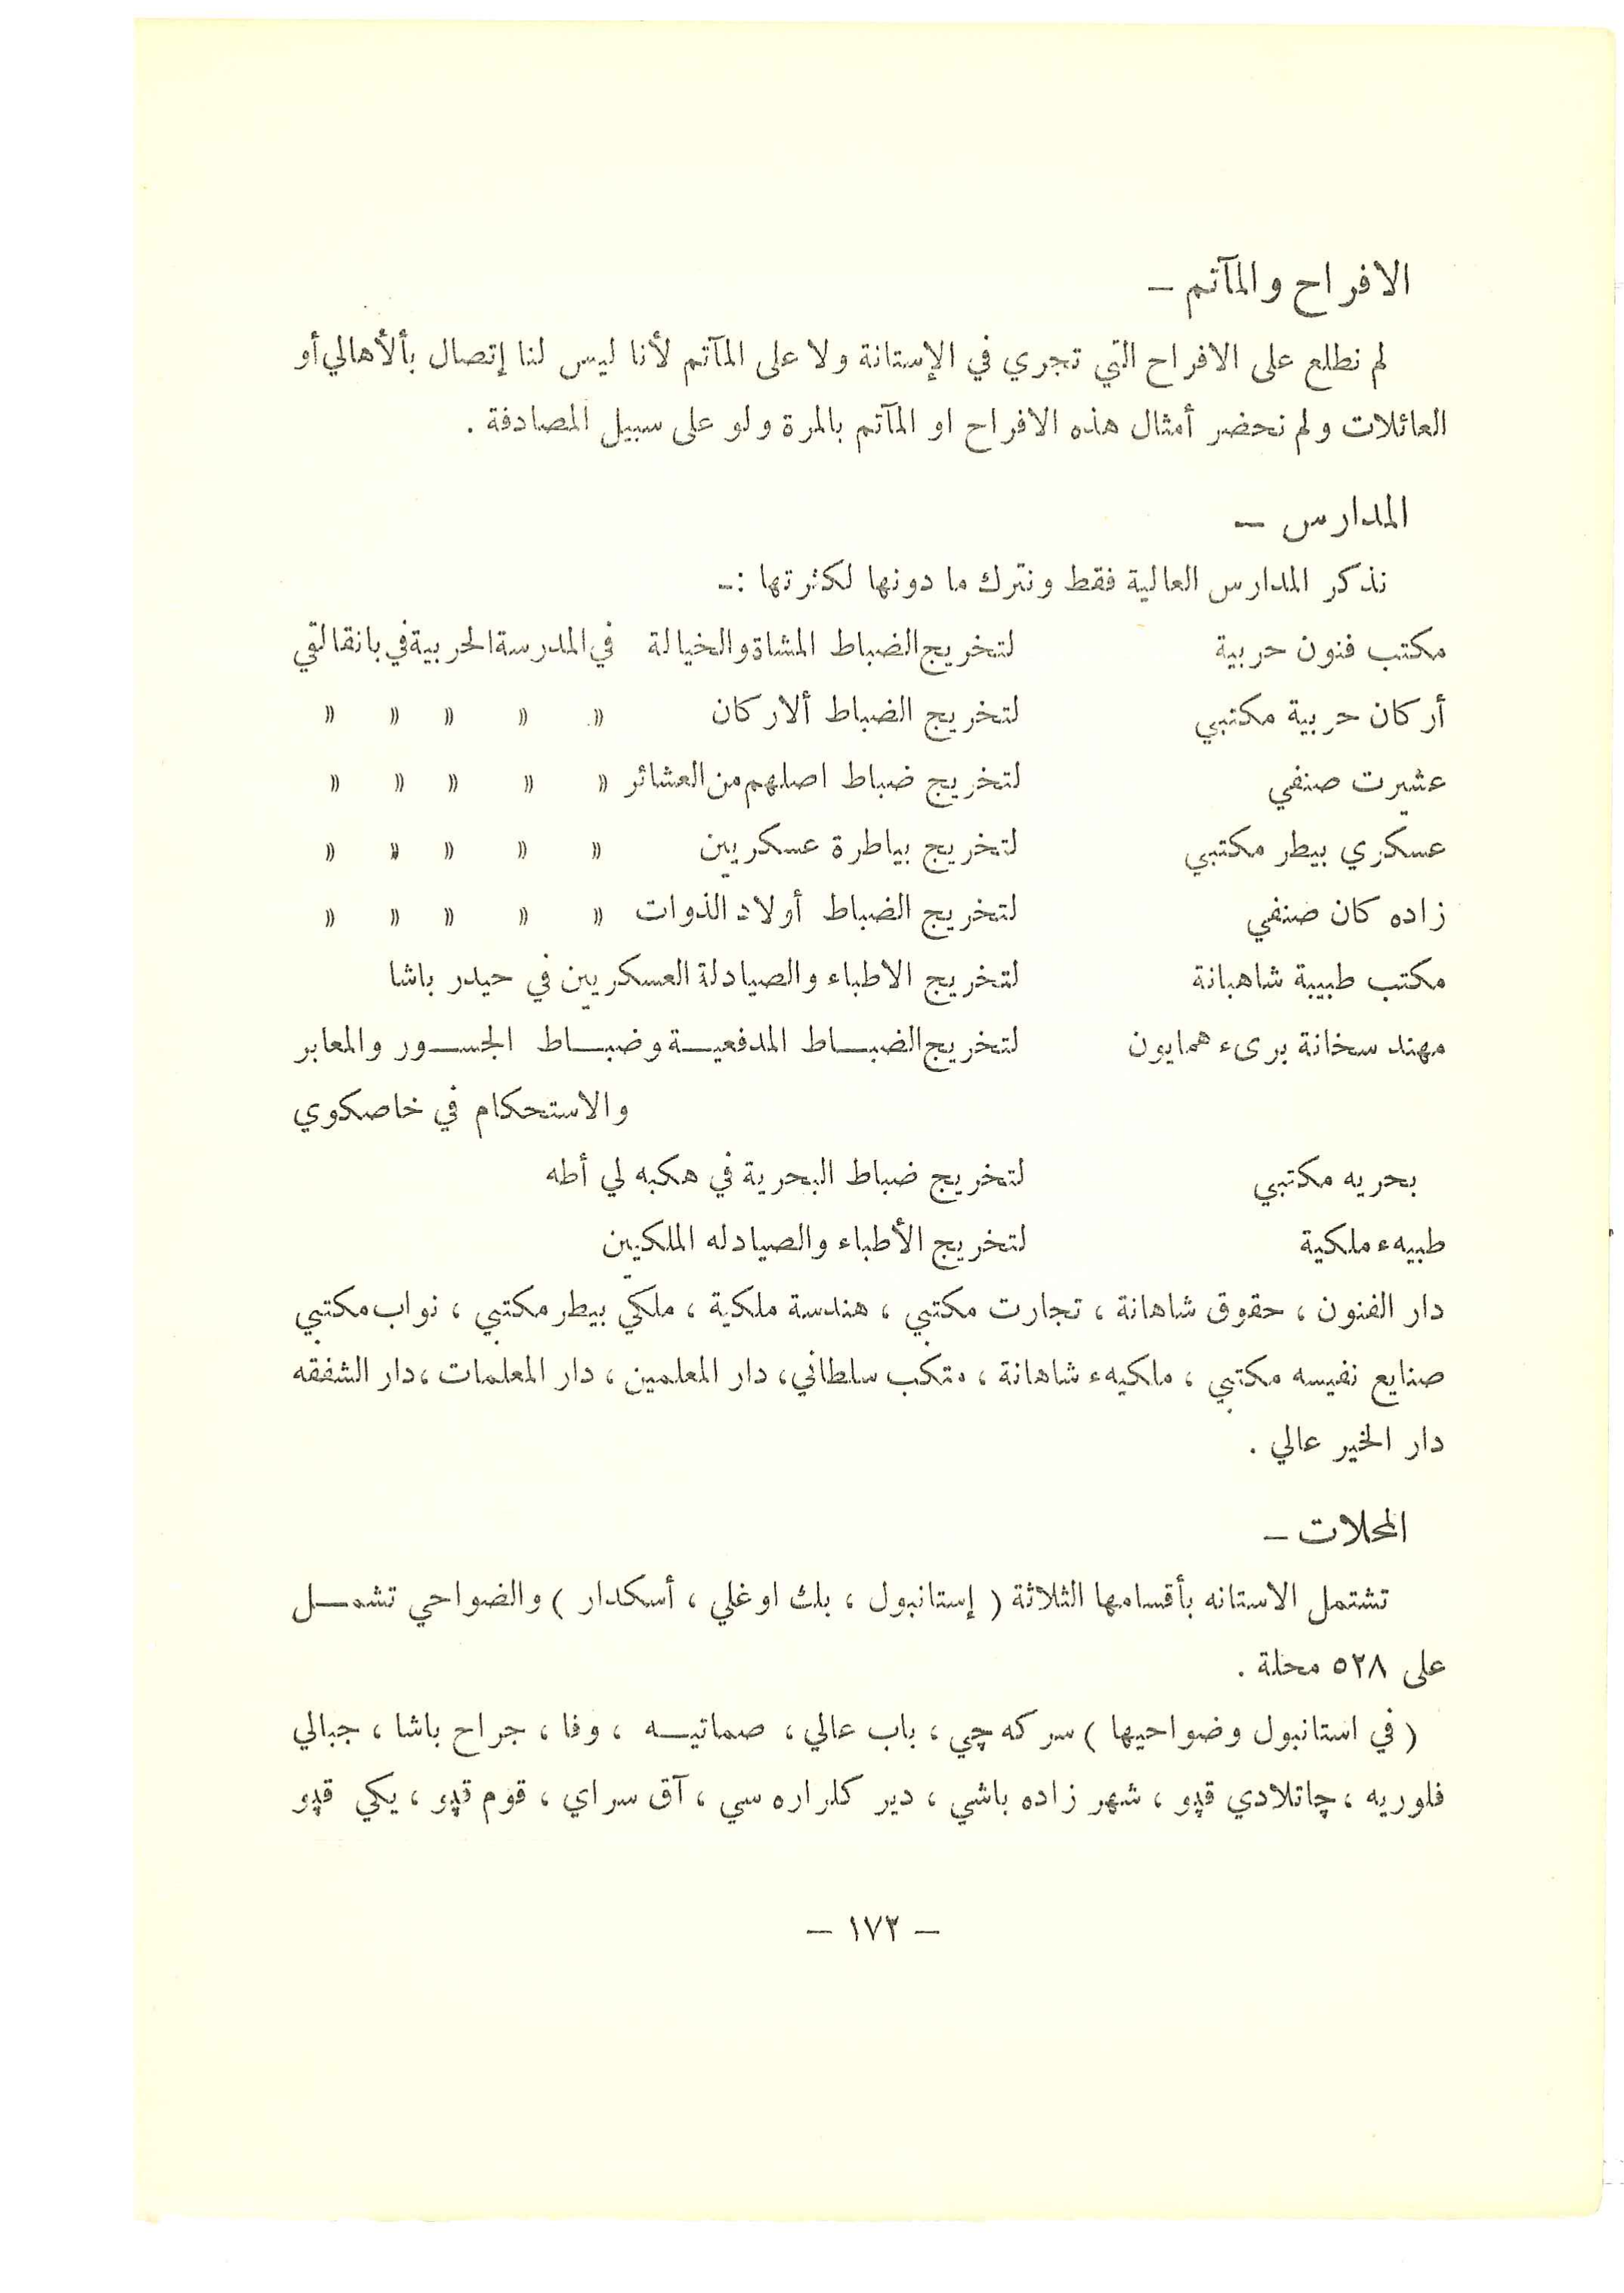 الافراح والمآتم –
لم نطلع على الافراح التي تجري في الإستانة ولا على المآتم لأنا ليس لنا إتصال بألأهالي أو
العائلات ولم نحضر أمثال هذه الافراح او المآتم بالمرة ولو على سبيل المصادفة .
المدارس –
نذكر المدارس العالية فقط ونترك ما دونها لكثرتها :-
مكتب فنون حربية لتخريج الضباط المشاة والخيالة في المدرسة الحربية في بانقالتي
أركان حربية مكتبي لتخريج الضباط ألاركان » » » » »
عشيرت صنفي لتخريج ضباط اصلهم من العشائر » » » » »
عسكري بيطر مكتبي لتخريج بياطرة عسكريين » » » » »
زاده كان صنفي لتخريج الضباط أولاد الذوات » » » » »
مكتب طبيبة شاهبانة لتخريج الاطباء والصيادلة العسكريين في حيدر باشا
مهند سخانة برىء همايون لتخريج الضباط المدفعية وضباط الجسور والمعابر
والاستحكام في خاصكوي
بحريه مكتبي لتخريج ضباط البحرية في هكبه لي أطه
طبيهء ملكية لتخريج الأطباء والصيادله الملكيين
دار الفنون ، حقوق شاهانة ، تجارت مكتبي ، هندسة ملكية ، ملكي بيطر مكتبي ، نواب مكتبي
صنايع نفيسه مكتبي ، ملكيهء شاهانة ، متكب سلطاني، دار المعلمين ، دار المعلمات ، دار الشفقه
دار الخير عالي .
المحلات –
تشتمل الاستانه بأقسامها الثلاثة ( إستانبول ، بك اوغلي ، أسكدار ) والضواحي تشمل
على ٥٢٨ محلة .
( في استانبول وضواحيها ) سركه چي ، باب عالي ، صماتيه ، وفا ، جراح باشا ، جبالي
فلوريه ، چاتلادي قپو ، شهر زاده باشي ، دير كلراره سي ، آق سراي ، قوم قپو ، يكي قپو
– ١٧٣ –